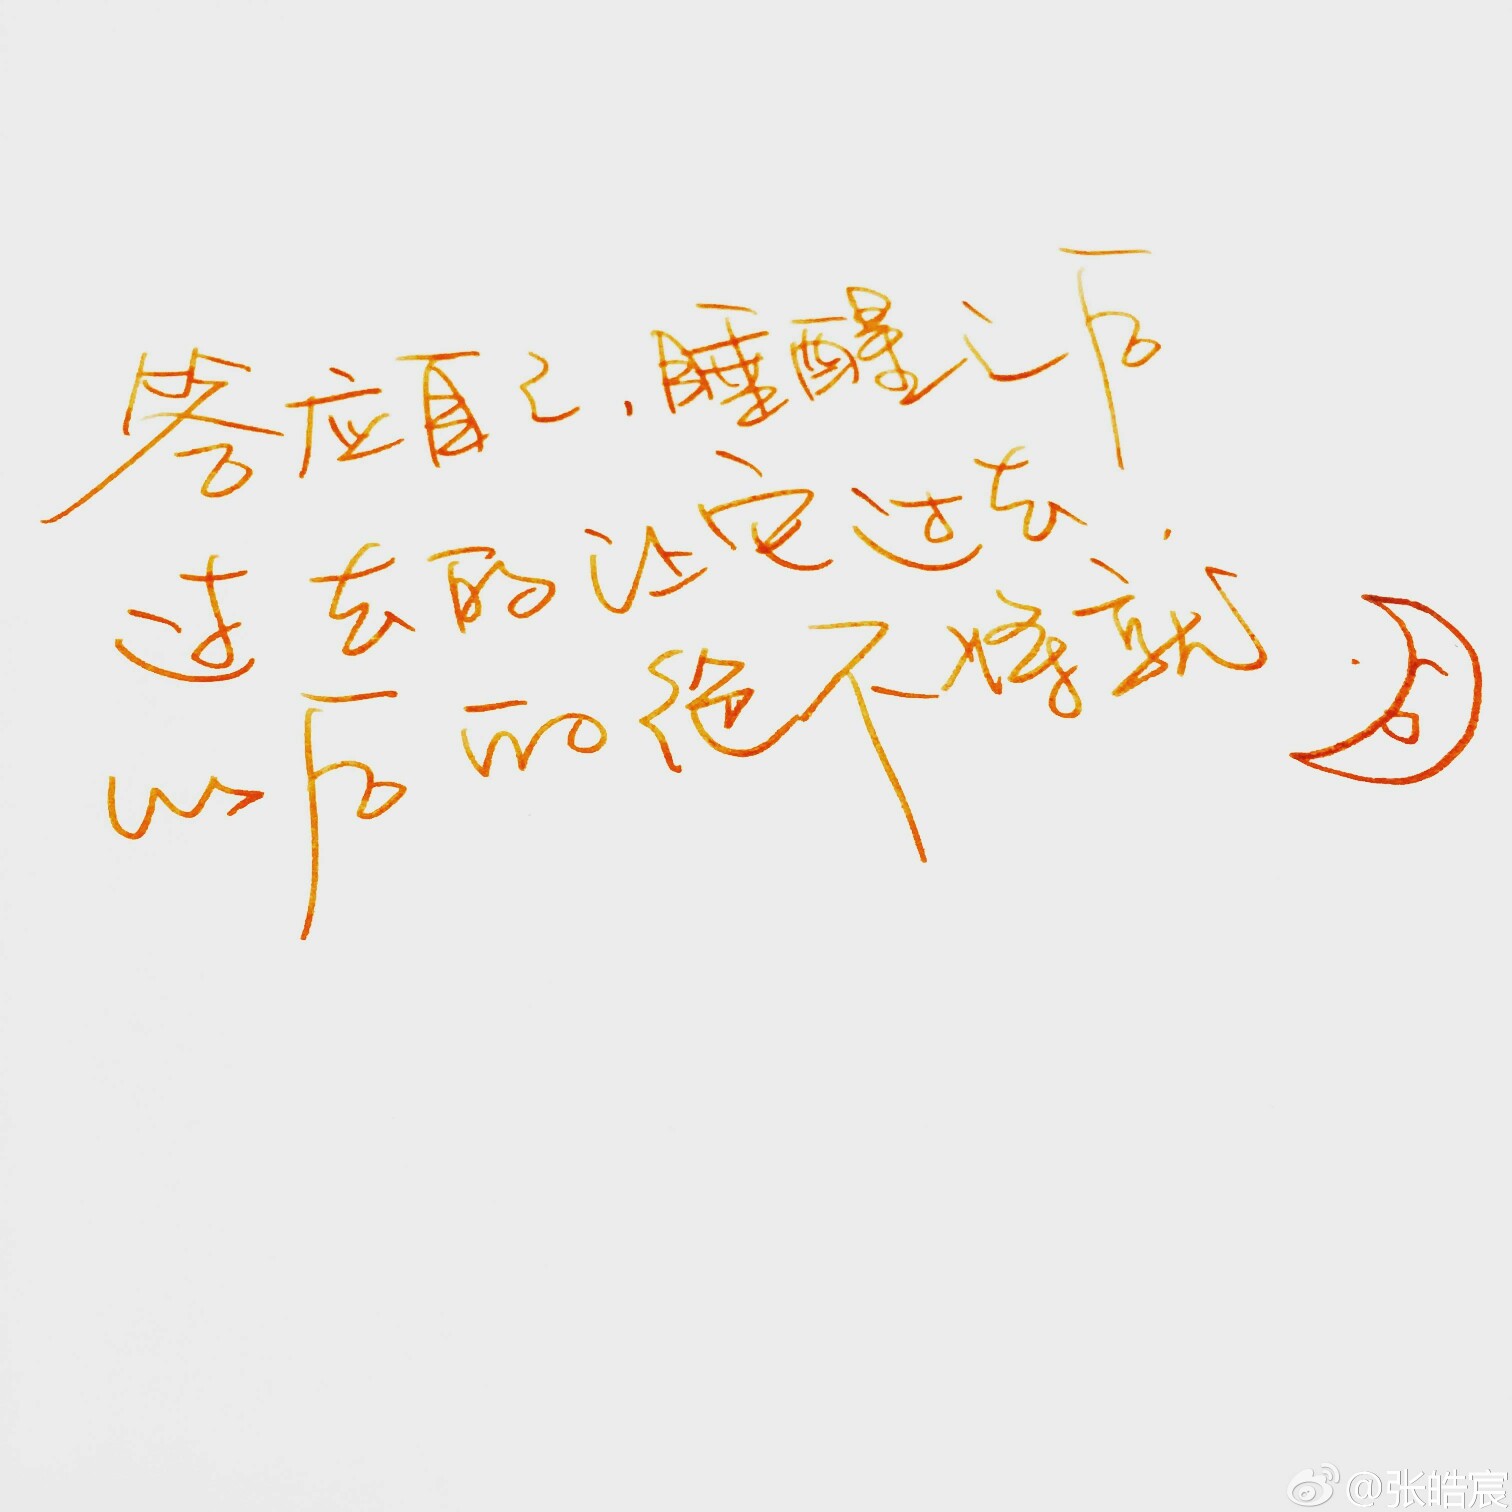 答应自己，睡醒之后
过去的让它过去，
以后的绝不将就.
@张皓宸